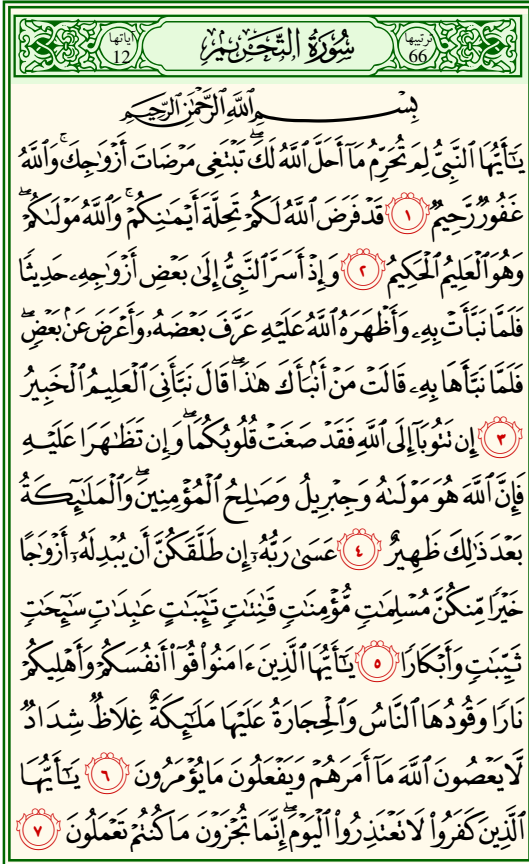 ترتيبها 66 سُورَةُ التَّحْرِيمِ آياتها 12
بِسْمِ اللَّهِ الرَّحْمَٰنِ الرَّحِيمِ
يَٰٓأَيُّهَا ٱلنَّبِىُّ لِمَ تُحَرِّمُ مَآ أَحَلَّ ٱللَّهُ لَكَ ۖ تَبْتَغِى مَرْضَاتَ أَزْوَٰجِكَ ۚ وَٱللَّهُ
غَفُورٌ رَّحِيمٌ ١ قَدْ فَرَضَ ٱللَّهُ لَكُمْ تَحِلَّةَ أَيْمَٰنِكُمْ ۚ وَٱللَّهُ مَوْلَىٰكُمْ ۖ
وَهُوَ ٱلْعَلِيمُ ٱلْحَكِيمُ ٢ وَإِذْ أَسَرَّ ٱلنَّبِىُّ إِلَىٰ بَعْضِ أَزْوَٰجِهِۦ حَدِيثًا
فَلَمَّا نَبَّأَتْ بِهِۦ وَأَظْهَرَهُ ٱللَّهُ عَلَيْهِ عَرَّفَ بَعْضَهُۥ وَأَعْرَضَ عَنۢ بَعْضٍ ۖ
فَلَمَّا نَبَّأَهَا بِهِۦ قَالَتْ مَنْ أَنۢبَأَكَ هَٰذَا ۖ قَالَ نَبَّأَنِىَ ٱلْعَلِيمُ ٱلْخَبِيرُ
٣ إِن تَتُوبَآ إِلَى ٱللَّهِ فَقَدْ صَغَتْ قُلُوبُكُمَا ۖ وَإِن تَظَٰهَرَا عَلَيْهِ
فَإِنَّ ٱللَّهَ هُوَ مَوْلَىٰهُ وَجِبْرِيلُ وَصَٰلِحُ ٱلْمُؤْمِنِينَ ۖ وَٱلْمَلَٰٓئِكَةُ
بَعْدَ ذَٰلِكَ ظَهِيرٌ ٤ عَسَىٰ رَبُّهُۥٓ إِن طَلَّقَكُنَّ أَن يُبْدِلَهُۥٓ أَزْوَٰجًا
خَيْرًا مِّنكُنَّ مُسْلِمَٰتٍ مُّؤْمِنَٰتٍ قَٰنِتَٰتٍ تَٰٓئِبَٰتٍ عَٰبِدَٰتٍ سَٰٓئِحَٰتٍ
ثَيِّبَٰتٍ وَأَبْكَارًا ٥ يَٰٓأَيُّهَا ٱلَّذِينَ ءَامَنُوا۟ قُوٓا۟ أَنفُسَكُمْ وَأَهْلِيكُمْ
نَارًا وَقُودُهَا ٱلنَّاسُ وَٱلْحِجَارَةُ عَلَيْهَا مَلَٰٓئِكَةٌ غِلَاظٌ شِدَادٌ
لَّا يَعْصُونَ ٱللَّهَ مَآ أَمَرَهُمْ وَيَفْعَلُونَ مَا يُؤْمَرُونَ ٦ يَٰٓأَيُّهَا
ٱلَّذِينَ كَفَرُوا۟ لَا تَعْتَذِرُوا۟ ٱلْيَوْمَ ۖ إِنَّمَا تُجْزَوْنَ مَا كُنتُمْ تَعْمَلُونَ ٧